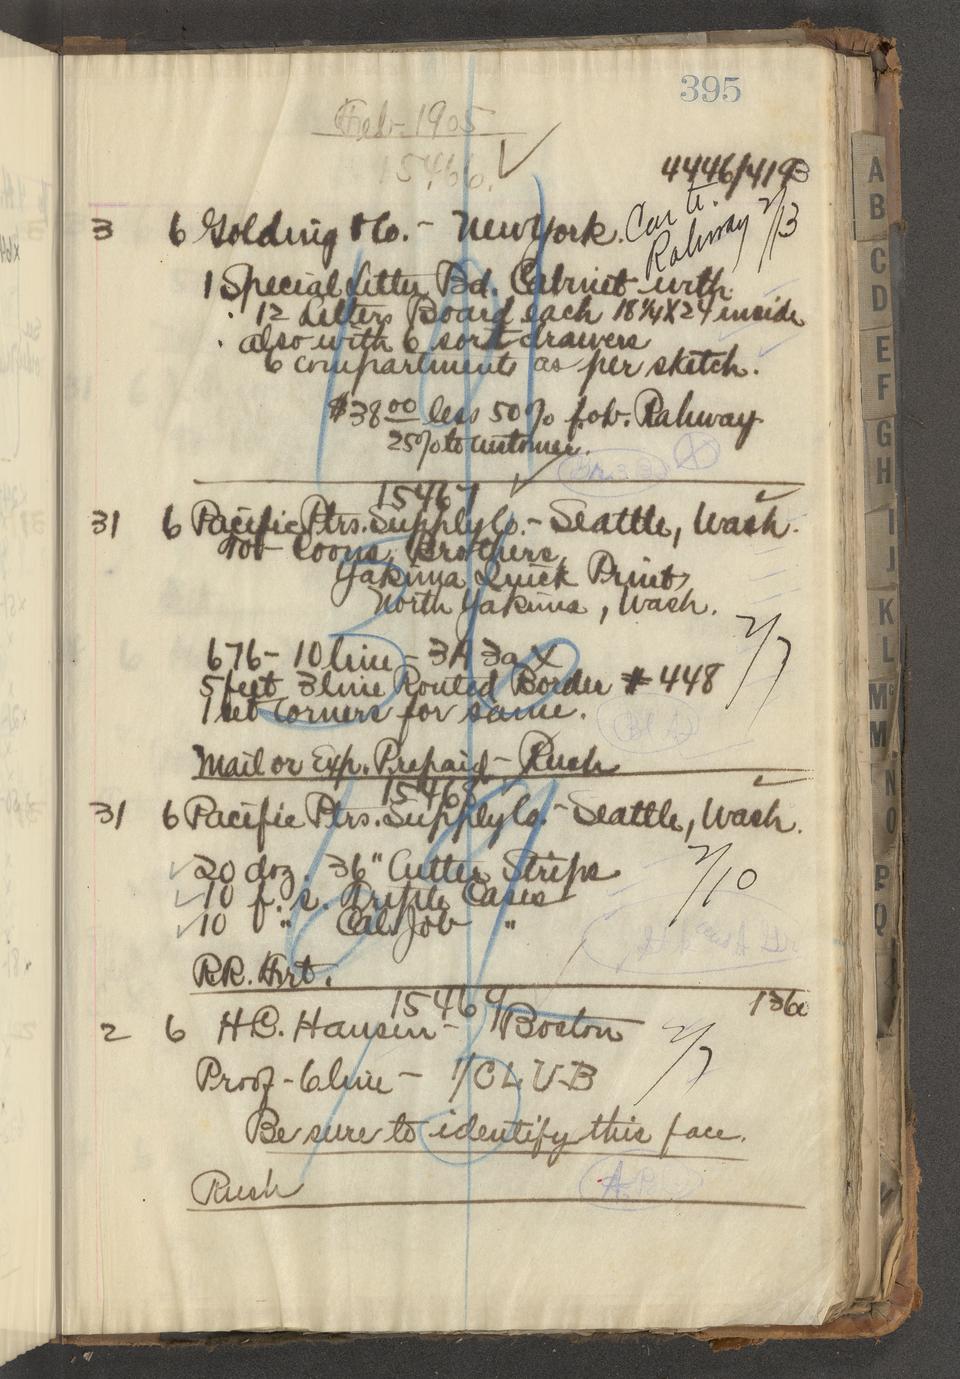 395
Feb. 1905
15466.
4446/4193
3 6 Golding & Co. - New York. Car tr. Rahway 2/13
1 Special Letter Bd. Cabinet with
12 Letters Board each 18 1/4 X 24 inside
also with 6 sort drawers
6 compartments as per sketch.
$38 00 less 50% f.o.b. Rahway
25% to customer.
15467
31 6 Pacific Ptrs. Supply Co. - Seattle, Wash.
for Coons Brothers,
Yakima Quick Print,
North Yakima, Wash.
2/7
676 - 10 line - 3A 3a X
5 feet 3 line Routed Border # 448
1 set Corners for same.
Mail or Exp. Prepaid - Rush
15468
31 6 Pacific Ptrs. Supply Co. - Seattle, Wash.
20 doz. 36" Cutter Strips 2/10
10 f. s. Triple Cases
10 " " Cal. Job "
R.R. Frt.
15469
136
2 6 H.C. Hansen - Boston 2/7
Proof - 6 line - 1/C L U-B
Be sure to identify this face.
Rush
A
B
C
D
E
F
G
H
I
J
K
L
Mc
M
N
O
P
Q